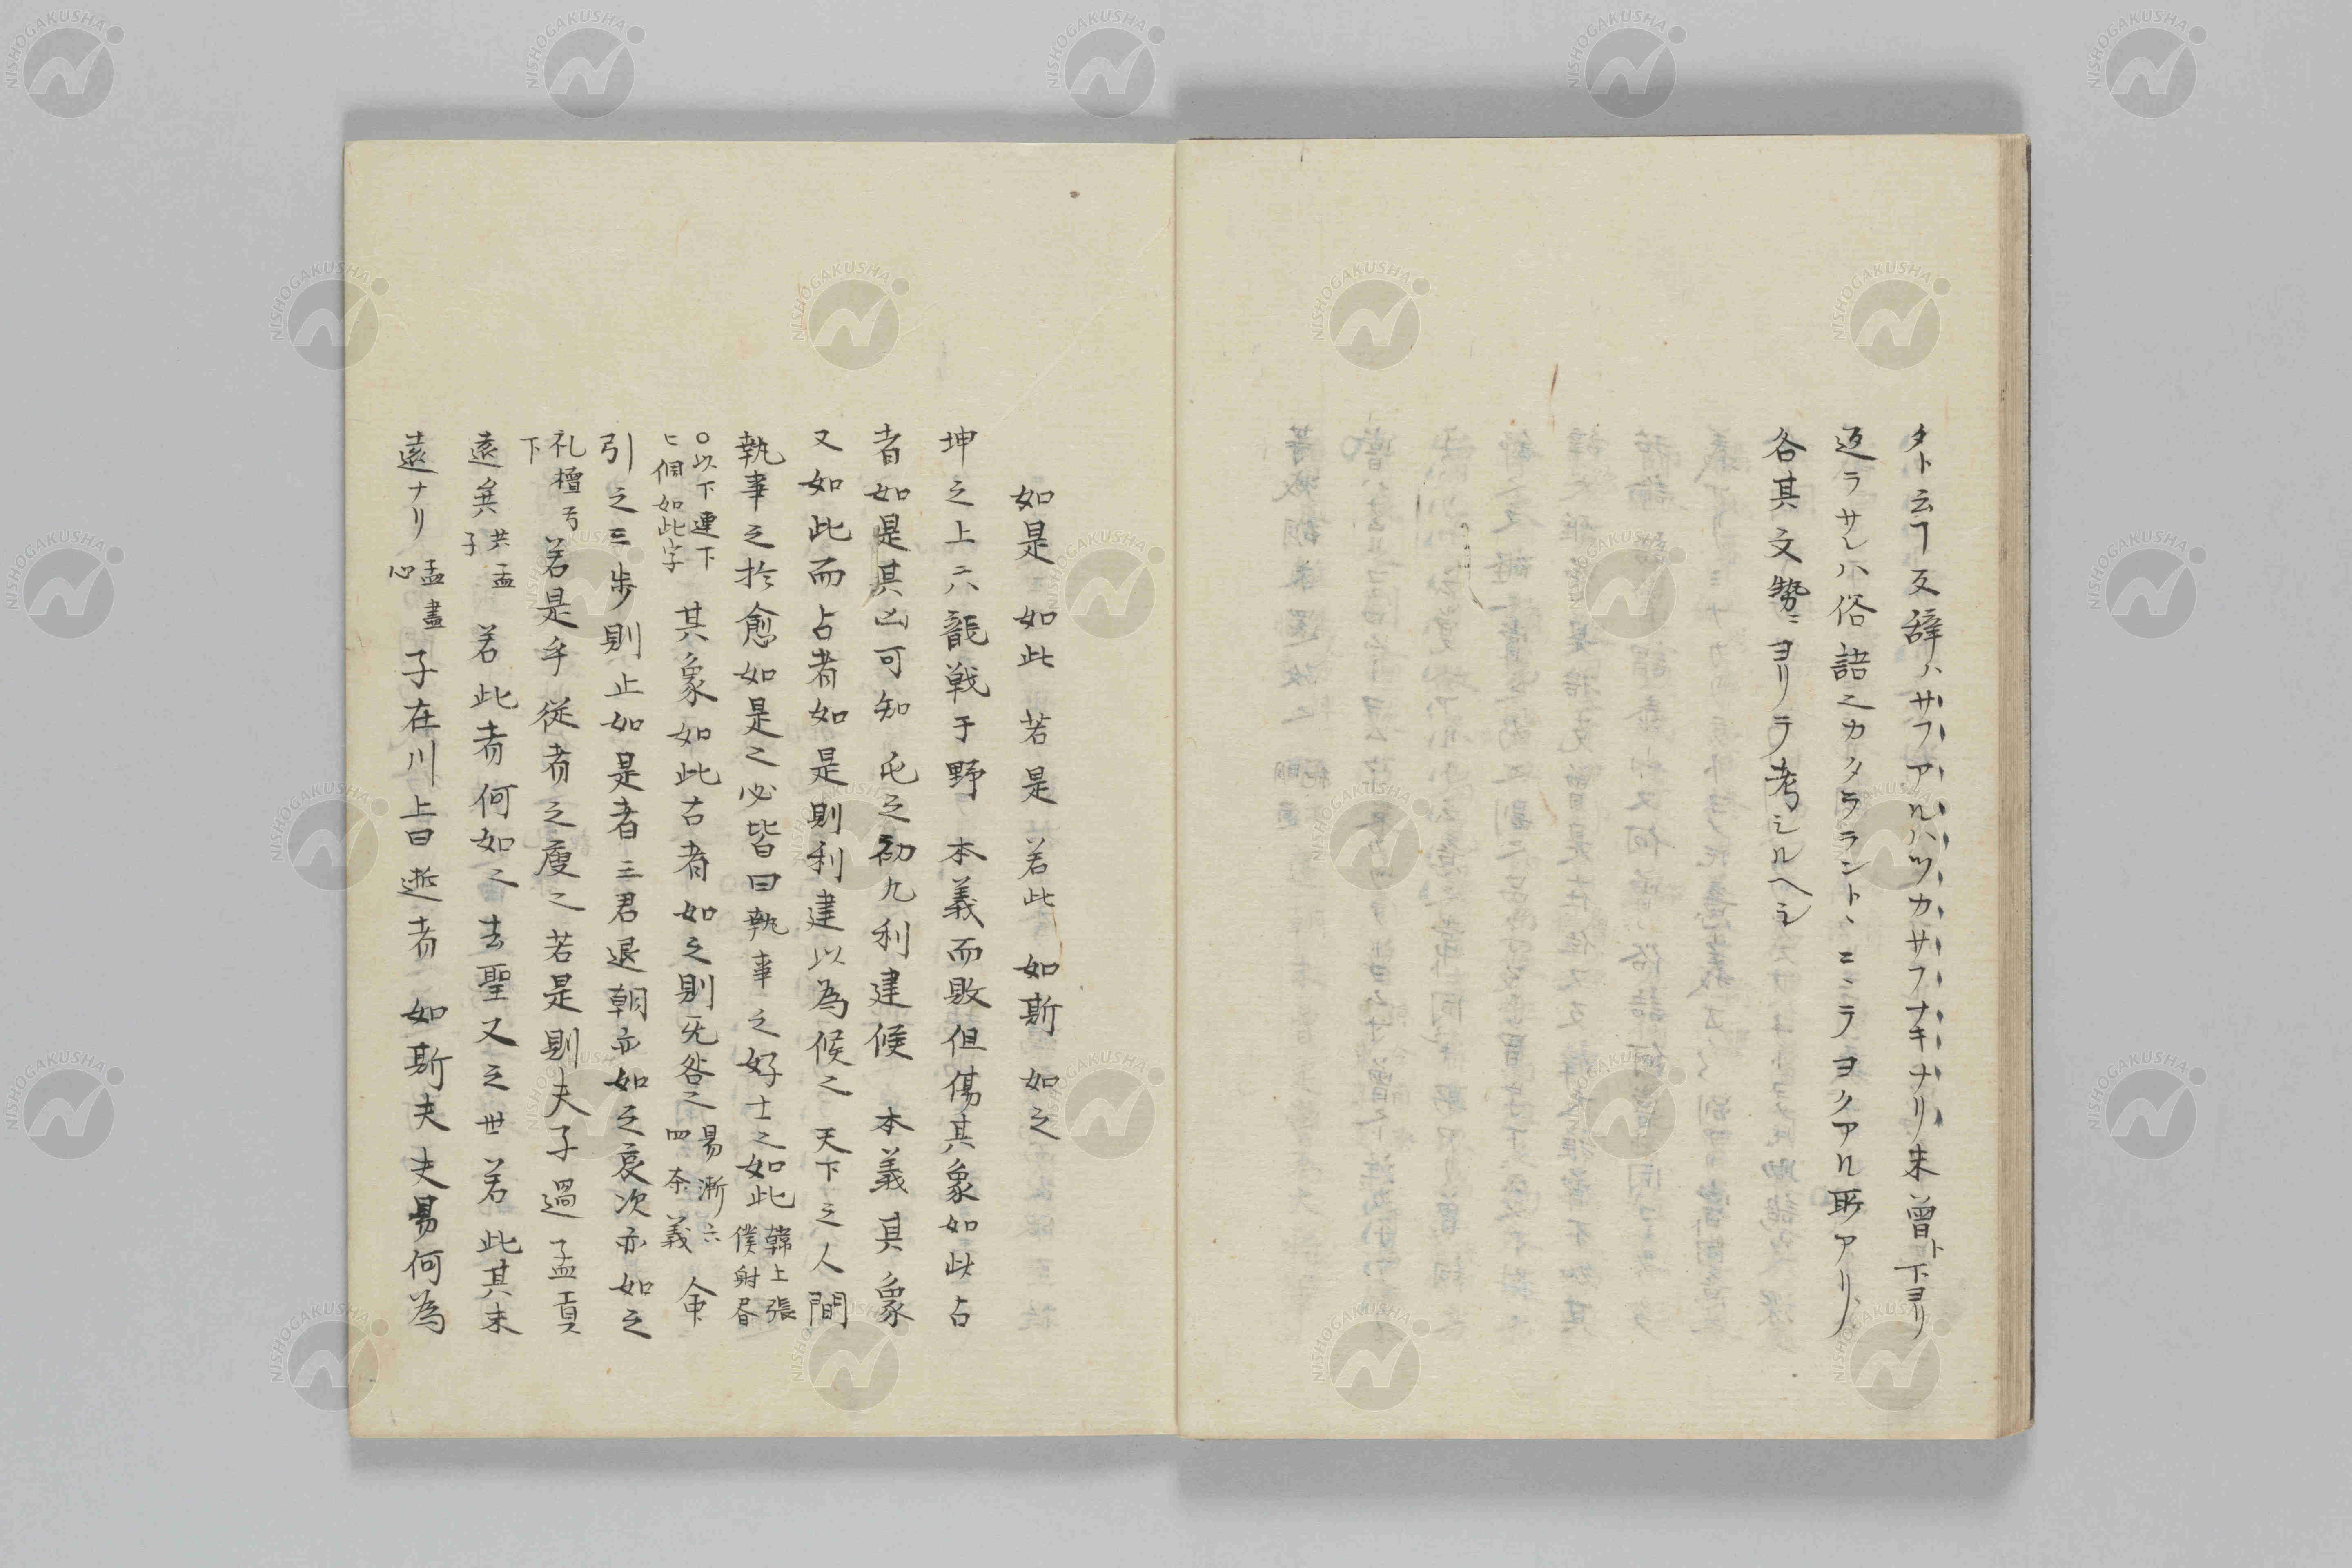 タト云フ反辞ハサフアルハツカサフナキナリ未曽ト下ヨリ
返ラサレハ俗語ニカタララントヽニヽテヨクアル所アリ
各其文勢ニヨリテ考シルヘシ
如是 如此 若是 若此 如斯 如之
坤之上六龍戦于野 本義而敗但傷其象如此占
者如是其凶可知 屯之初九利建候 本義其象
又如此而占者如是則利建以為候之 天下之人間
執事之於愈如是之必皆曰執事之好士之如此 韓上張僕射昏
○以下連下ヒ個如此字 其象如此古者如之則旡咎之 易漸六四本義 命
引之三歩則止如是者三君退朝亦如之哀次亦如之
礼檀弓下 若是乎従者之廋之 若是則夫子過孟賁
遠矣 共孟子 若此者何如之 去聖又之世若此其未
遠ナリ 孟盡心 子在川上曰逝者 如斯夫夫易何為
NISHOGAKUSHA